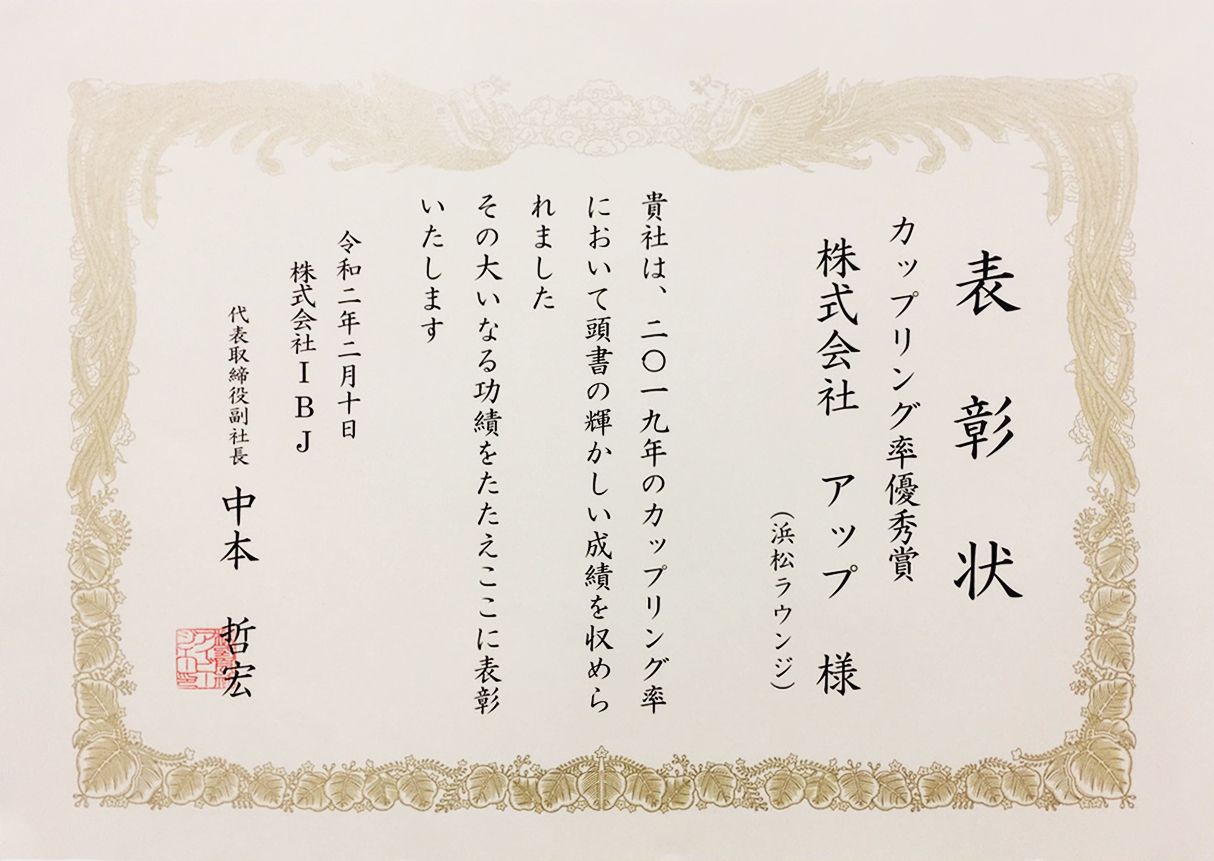 表彰状
カップリング率優秀賞
株式会社 アップ 様
（浜松ラウンジ）
貴社は、二〇一九年のカップリング率
において頭書の輝かしい成績を収めら
れました
その大いなる功績をたたえここに表彰
いたします
令和二年二月十日
株式会社ＩＢＪ
代表取締役副社長 中本 哲宏